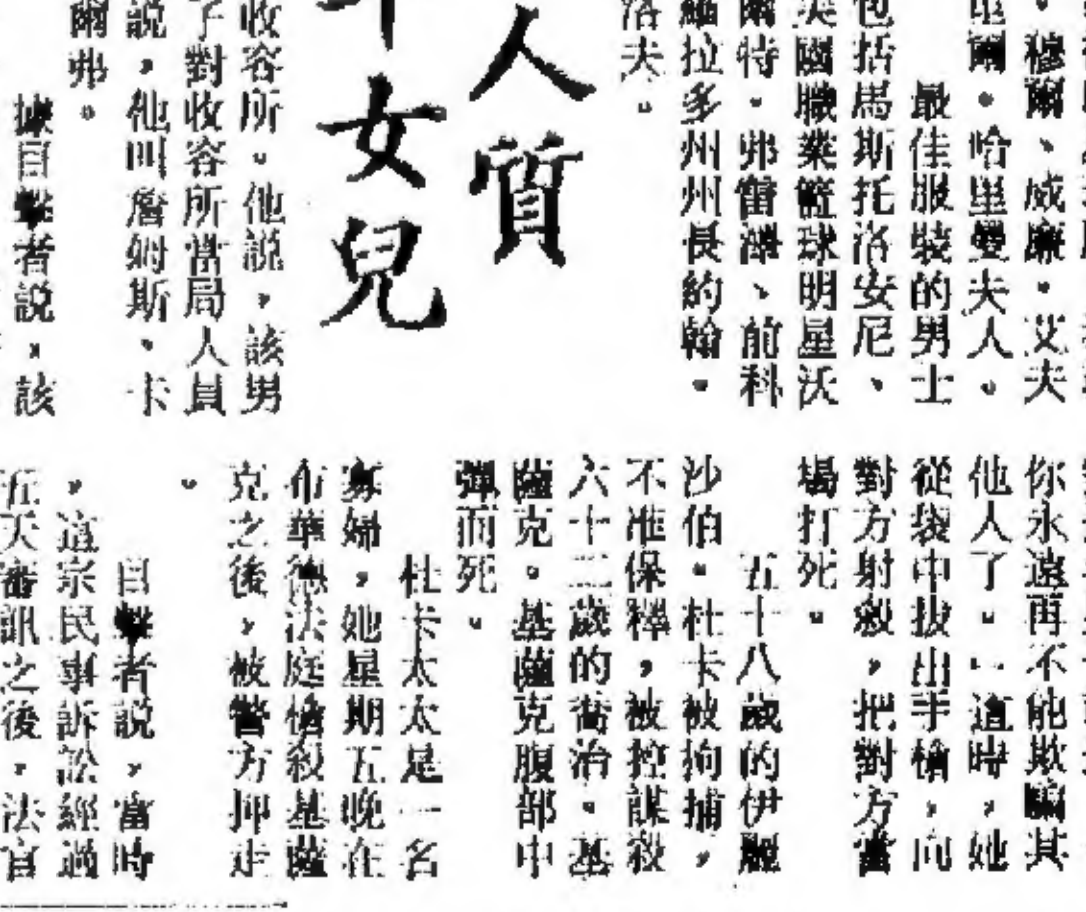 穆爾、威廉·艾夫
里爾·哈里曼夫人。
最佳服裝的男士
包括馬斯托洛安尼、
美國職業籃球明星沃
爾特·弗雷澤、前科
羅拉多州州長約翰·
洛夫。
人質
女兒
收容所。他説，該男
子對收容所當局人員
説，他叫詹姆斯·卡
爾弗。
據目擊者説，該
你永遠再不能欺騙其
他人了。」這時，她
從袋中拔出手槍，向
對方射殺，把對方當
場打死。
五十八歲的伊麗
沙伯·杜卡被拘捕，
不准保釋，被控謀殺
六十三歲的喬治·基
薩克。基薩克腹部中
彈而死。
杜卡太太是一名
寡婦，她星期五晚在
布華德法庭槍殺基薩
克之後，被警方押走
。
目擊者説，當時
，這宗民事訴訟經過
五天審訊之後，法官